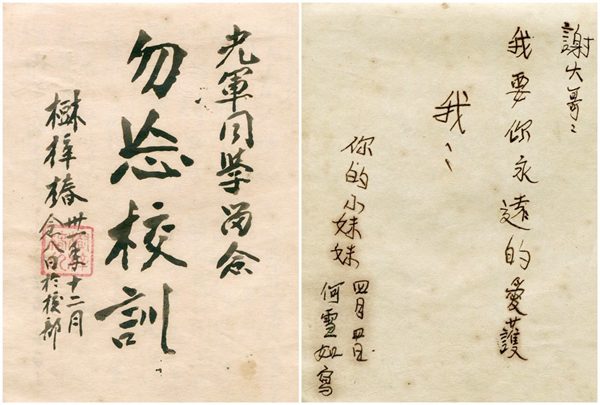 光軍同學留念
勿忘校訓
梓椿
卅一年十二月
念八日於校部
謝大哥〻
我要你永遠的愛護
我〻
你的小妹妹
四月四日
何雪如寫